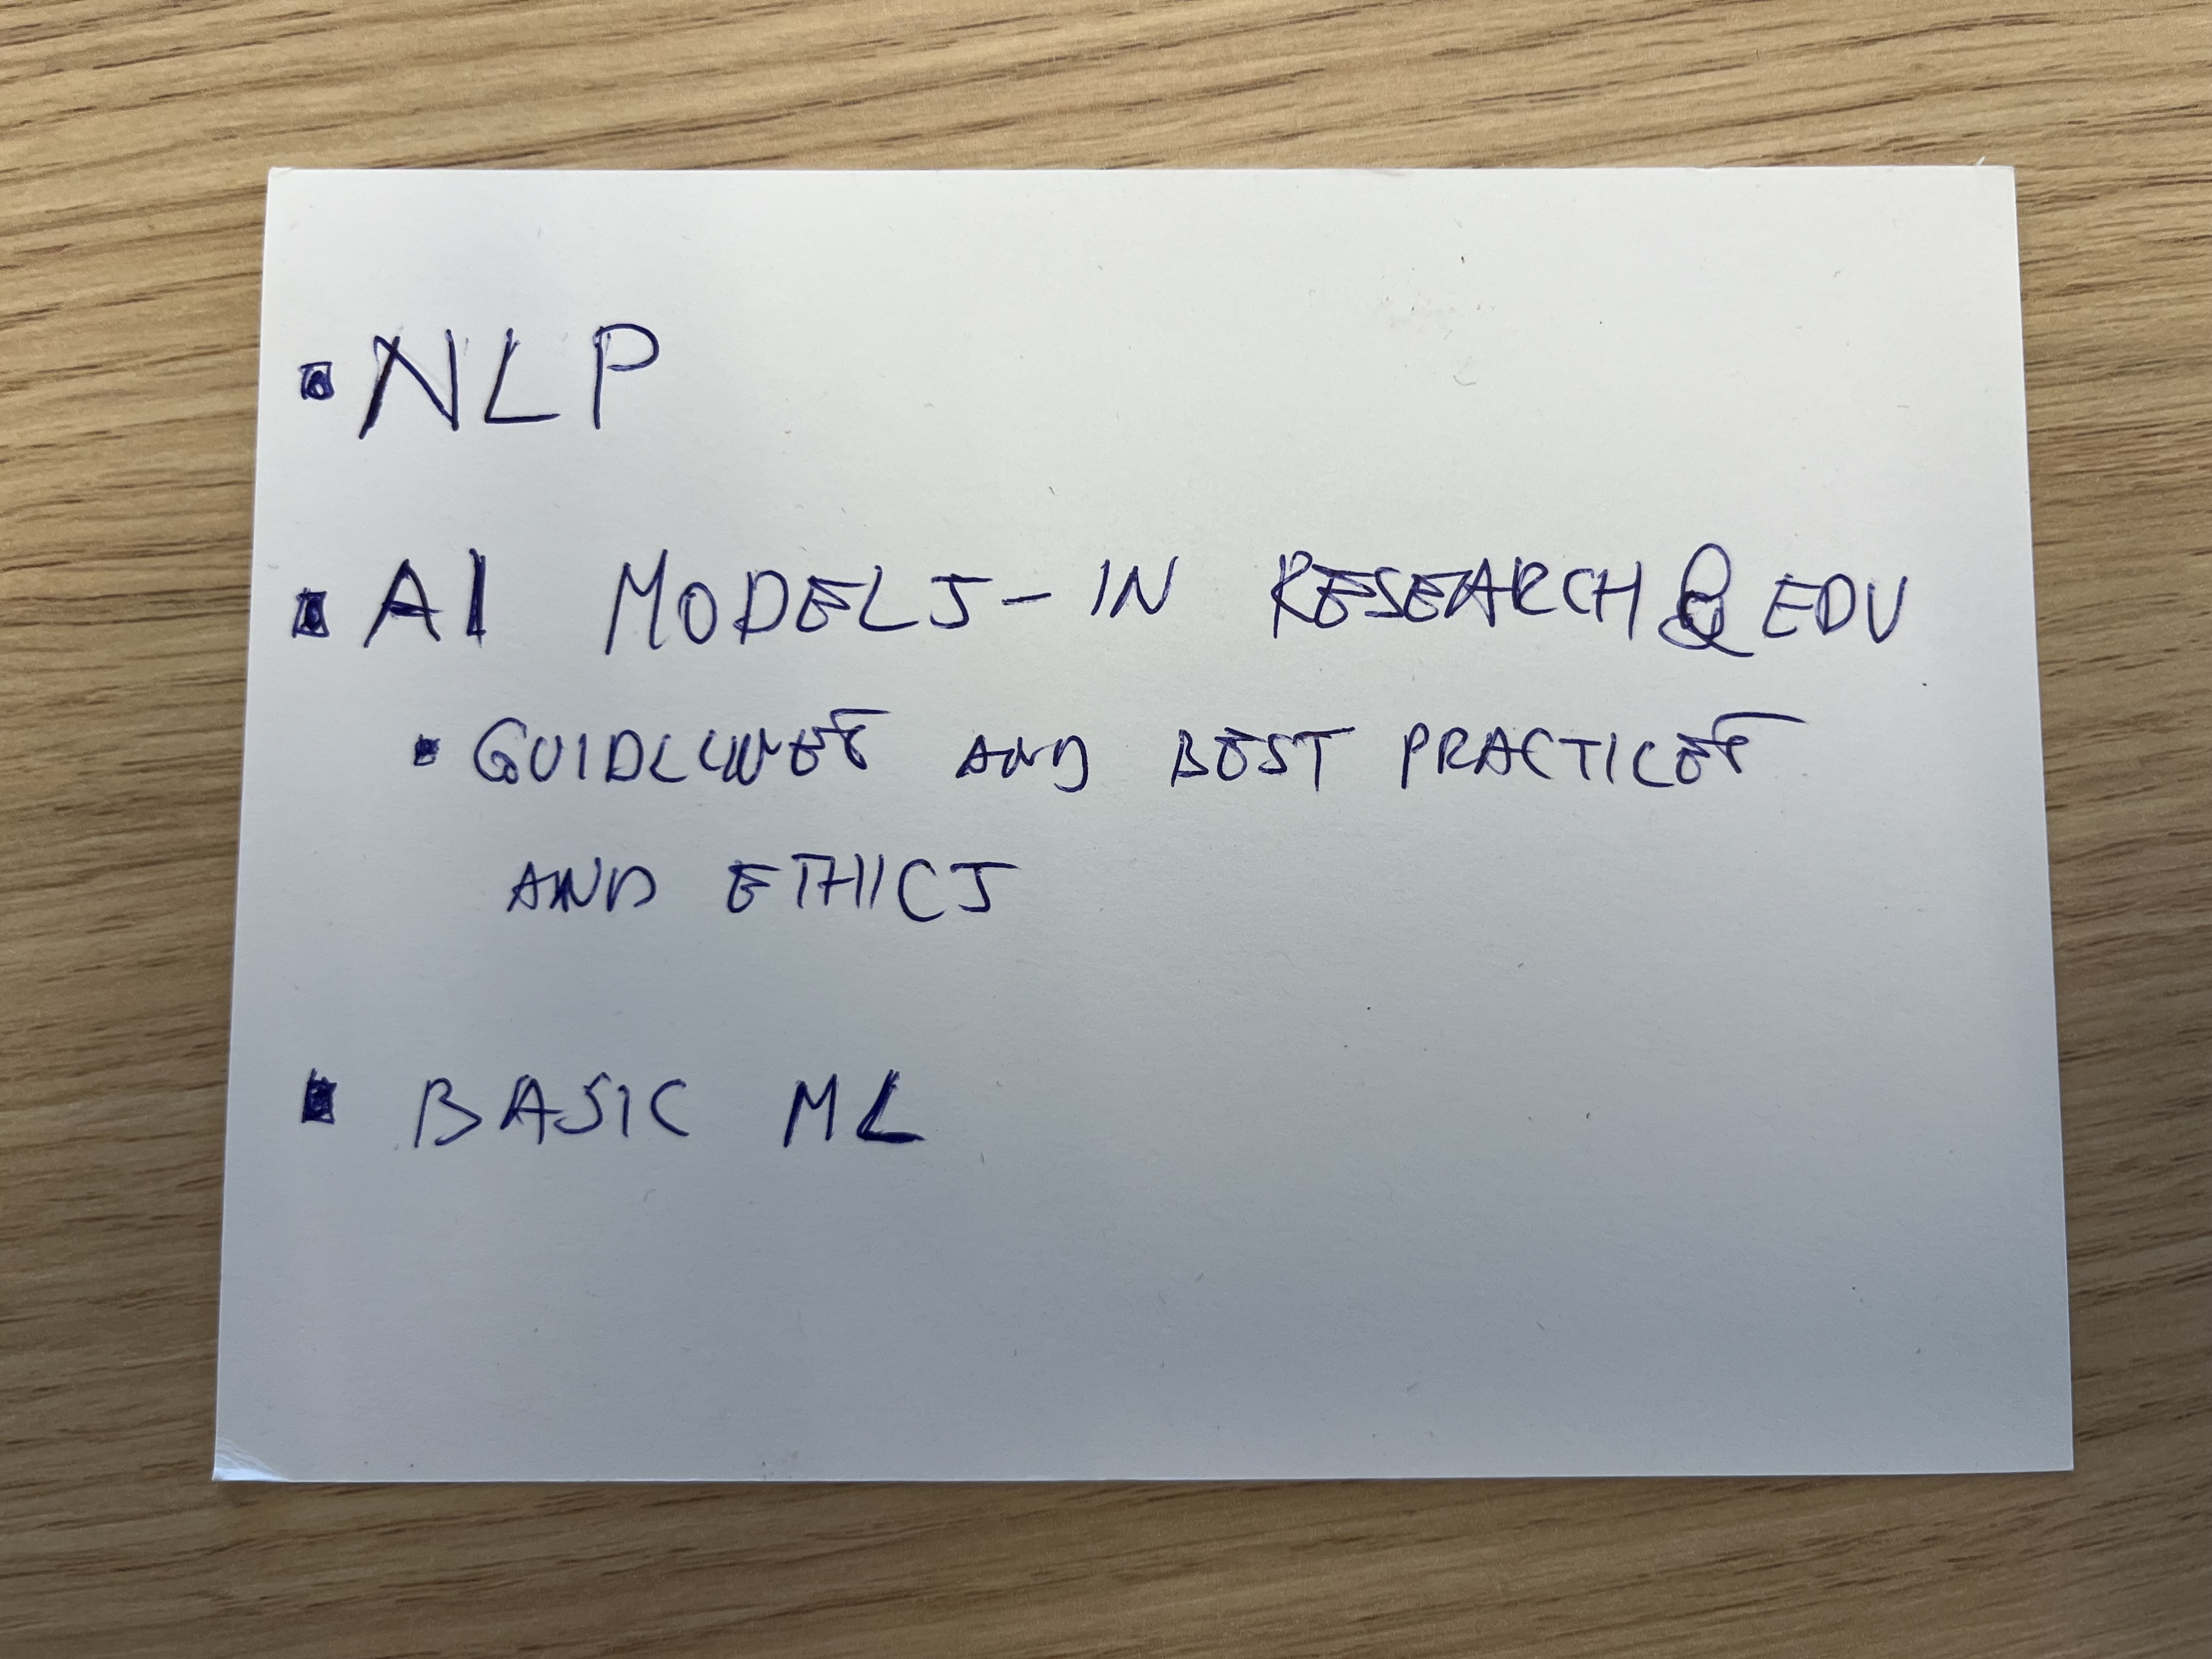 ▪ NLP
▪ AI MODELS - IN RESEARCH & EDU
▪ GUIDLINES AND BEST PRACTICES
AND ETHICS
▪ BASIC ML